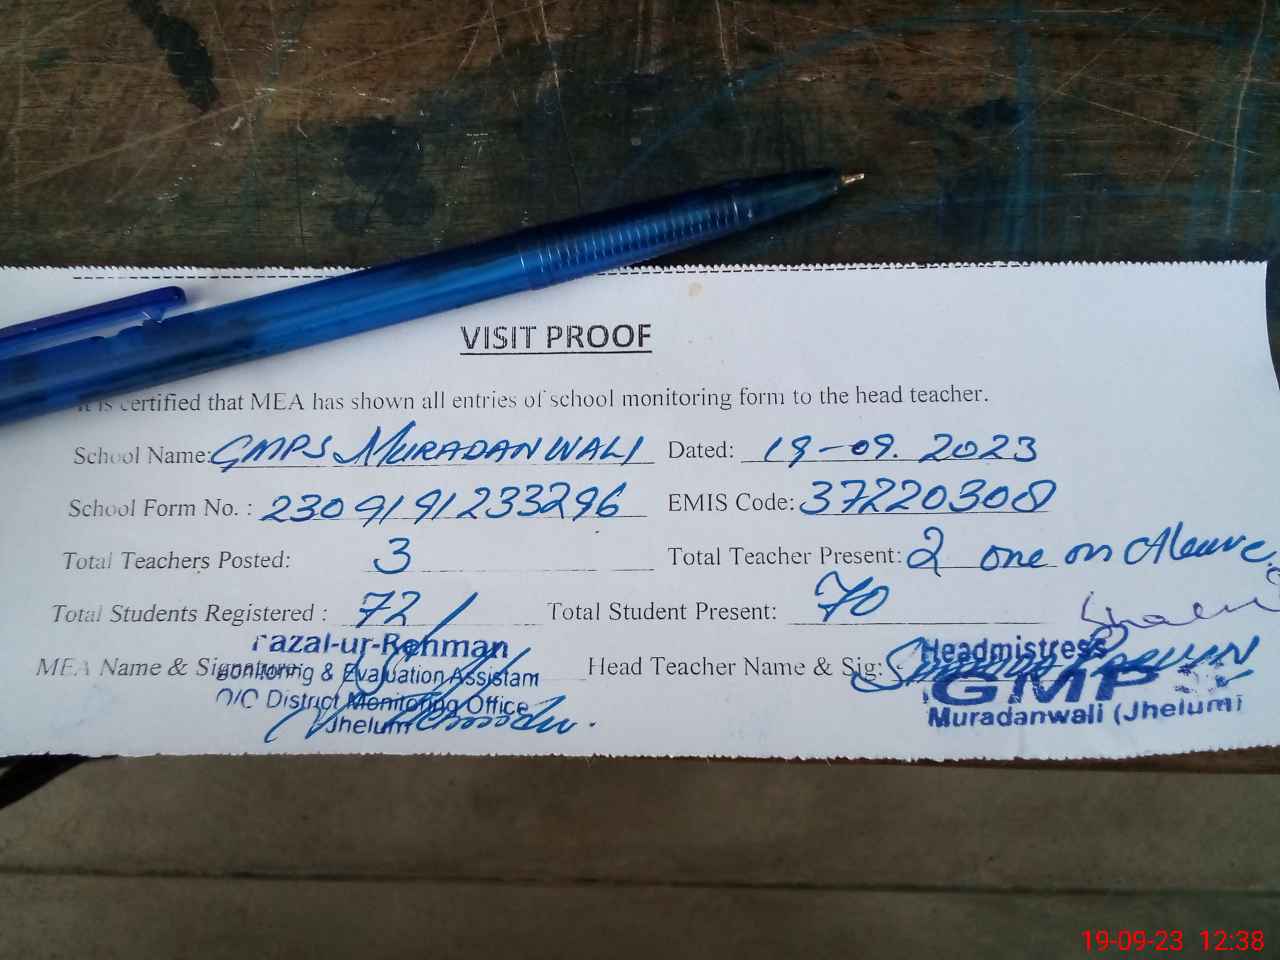 VISIT PROOF
It is certified that MEA has shown all entries of school monitoring form to the head teacher.
School Name: GMPS MURADANWALI Dated: 19-09.2023
School Form No. : 2309191233296 EMIS Code: 37220308
Total Teachers Posted: 3 Total Teacher Present: 2 one on Cleave.
Total Students Registered : 72 Total Student Present: 70
MEA Name & Signature: Head Teacher Name & Sig:
Fazal-ur-Rehman
Monitoring & Evaluation Assistant
O/O District Monitoring Office
Jhelum
Headmistress
GMPS
Muradanwali (Jhelum)
19-09-23 12:38